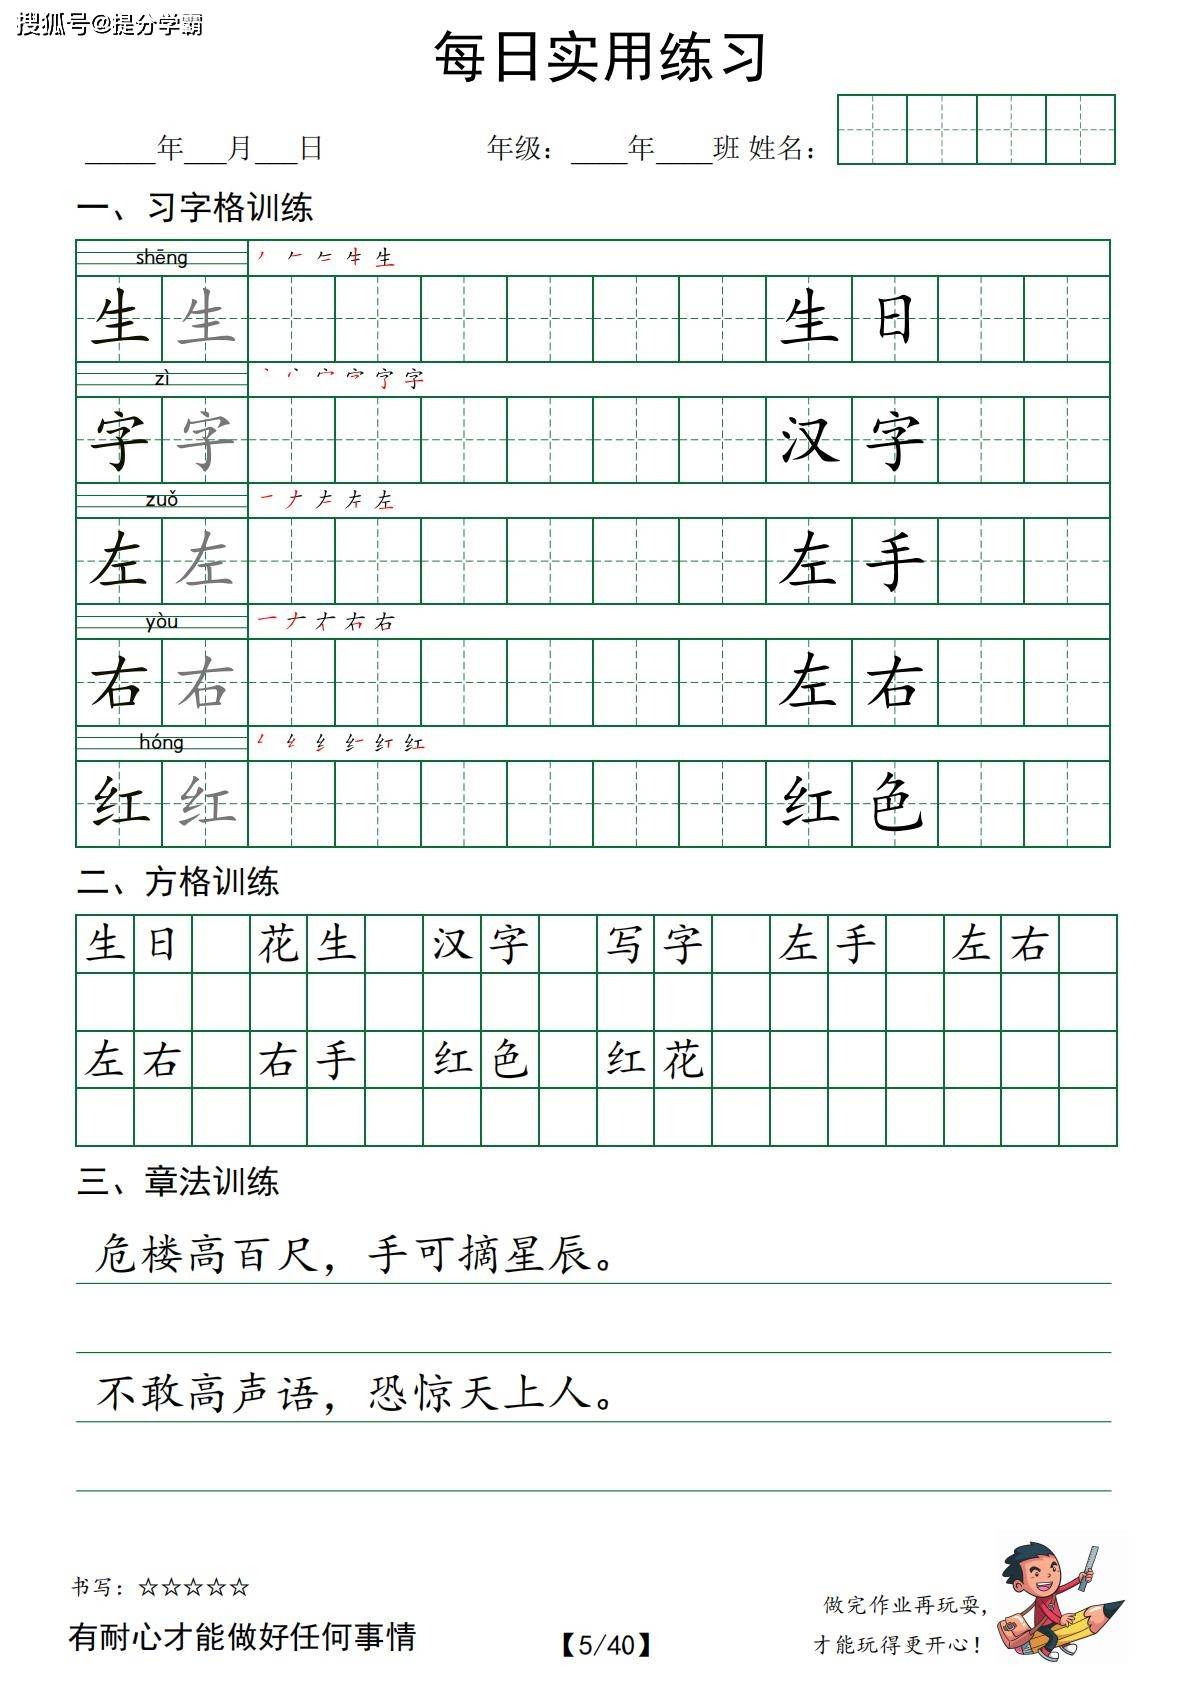 搜狐号@提分学霸
每日实用练习
_____年___月___日 年级：____年____班 姓名：
一、习字格训练
shēng 丿 𠂉 𠂒 牛 生
生 生 生 日
zì 丶 丷 冖 宀 字
字 字 汉 字
zuǒ 一 𠂇 左
左 左 左 手
yòu 一 𠂇 右 右
右 右 左 右
hóng 纟 红
红 红 红 色
二、方格训练
生 日 花 生 汉 字 写 字 左 手 左 右
左 右 右 手 红 色 红 花
三、章法训练
危楼高百尺，手可摘星辰。
不敢高声语，恐惊天上人。
书写：☆☆☆☆☆
做完作业再玩耍，
有耐心才能做好任何事情
【5/40】
才能玩得更开心！